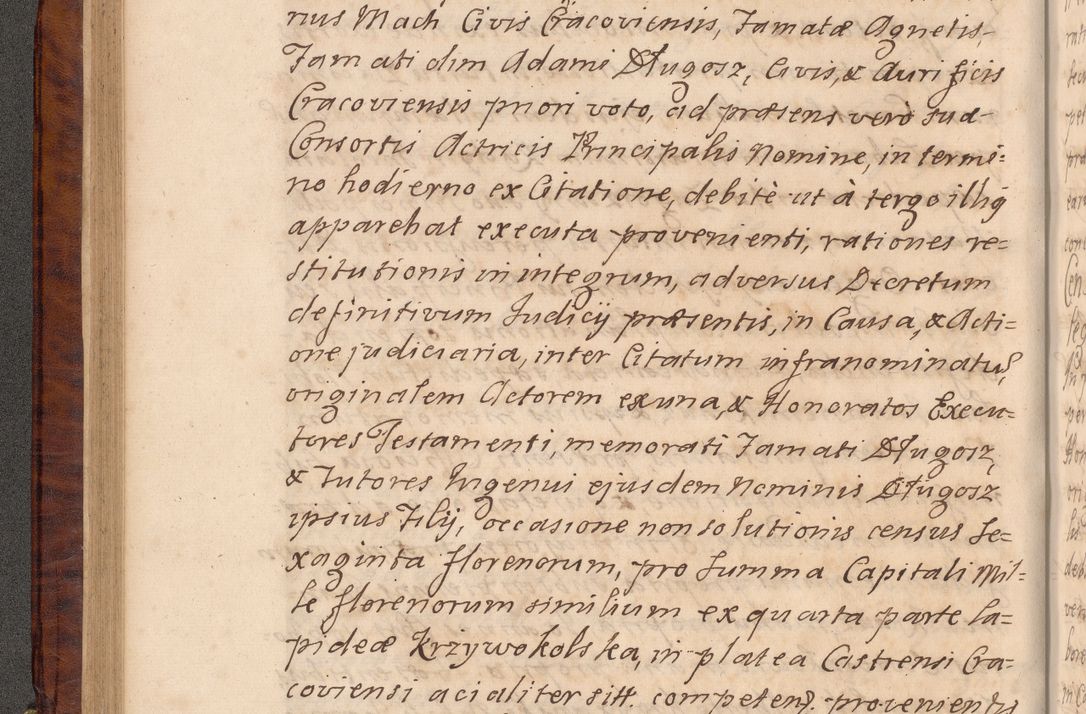 rius Mach Civis Cracoviensis, Famatæ Agnetis,
Famati olim Adami Długosz, Civis, & Aurificis
Cracoviensis priori voto, ad præsens verò suæ
Consortis Actricis Principalis Nomine, in termi=
no hodierno ex Citatione, debitè ut à tergo illiq
apparebat executa provenienti, rationes re=
stitutionis in integrum, adversus Decretum
definitivum Judicij præsentis, in Causa, & Acti=
one judiciaria, inter Citatum infranominatu
originalem Actorem ex una, & Honoratos Execu=
tores Testamenti, memorati Famati Długosz,
& Tutores Ingenui ejusdem Nominis Długosz
ipsius Filij, occasione non solutionis census Se=
xaginta florenorum, pro Summa Capitali Mil=
le florenorum similium ex quarta parte la=
pideæ Krzywokolska, in platea Castrensi Cra=
coviensi acialiter sitt. competen provenientis